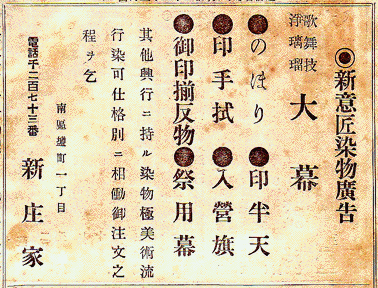 ◉新意匠染物廣告
歌舞技
淨瑠璃
大幕
●のぼり●印半天
●印手拭●入營旗
●御印揃反物●祭用幕
其他興行ニ持ル染物極美術流
行染可仕格別ニ相働御注文之
程ヲ乞
南區 町一丁目
電話千二百七十三番
新庄家